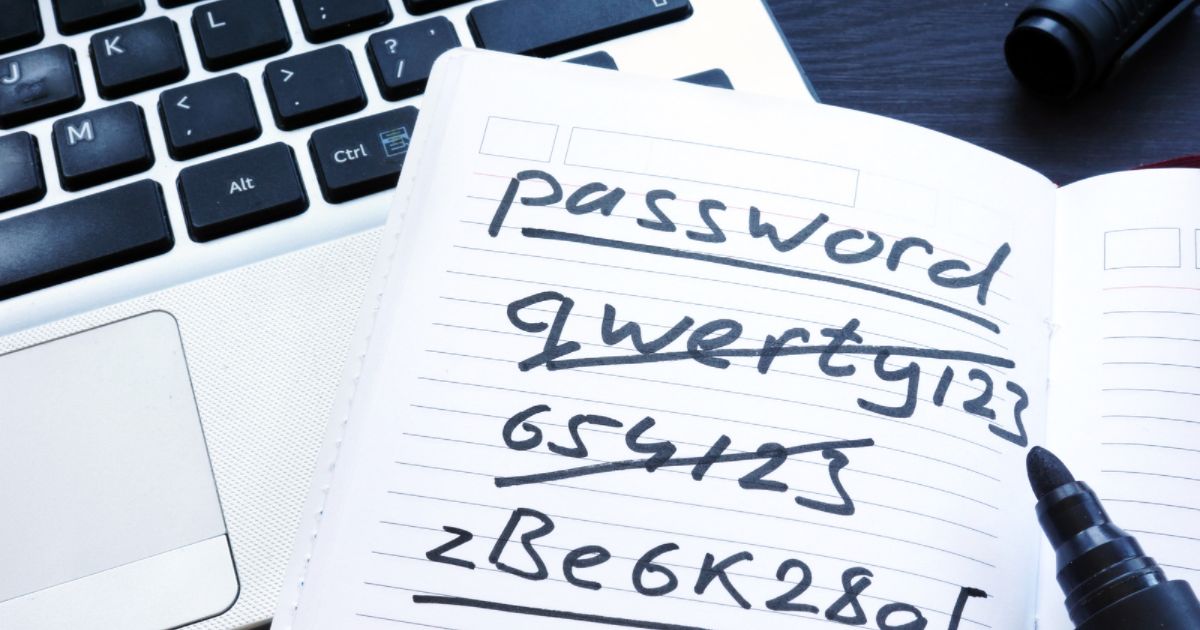 J K L ;
M < , > . ? /
Alt Ctrl
password
qwerty123
654123